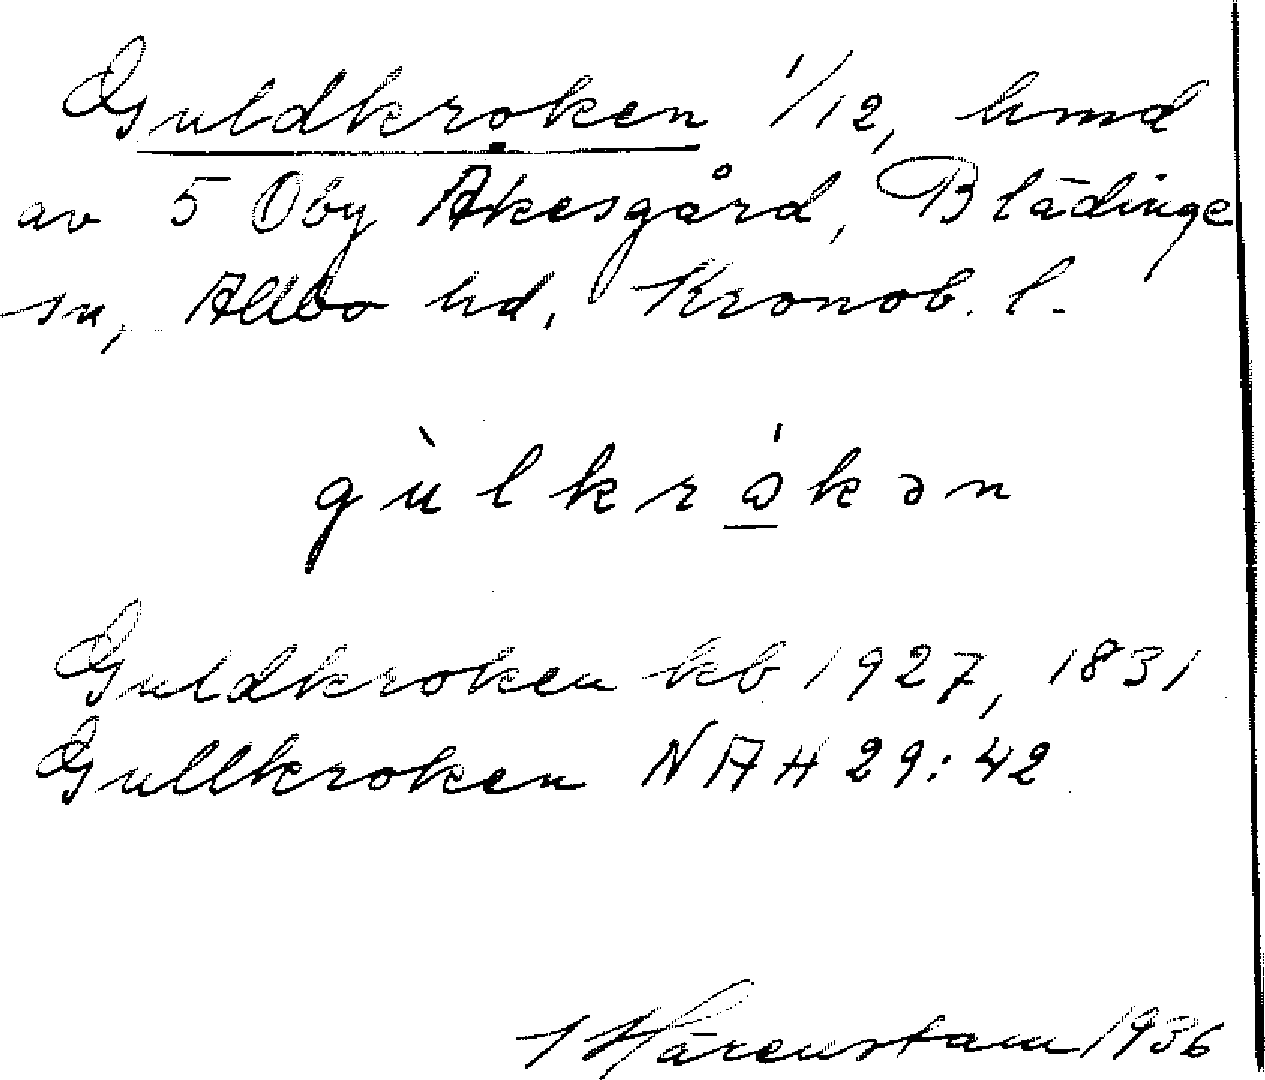 Guldkroken 1/12, hmd
av 5 Oby Åkesgård, Blädinge
sn, Allbo hd, Kronob. l.
gùlkrókən
Guldkroken kb 1927, 1831
Gullkroken NAH 29:42
I Härenstam 1936